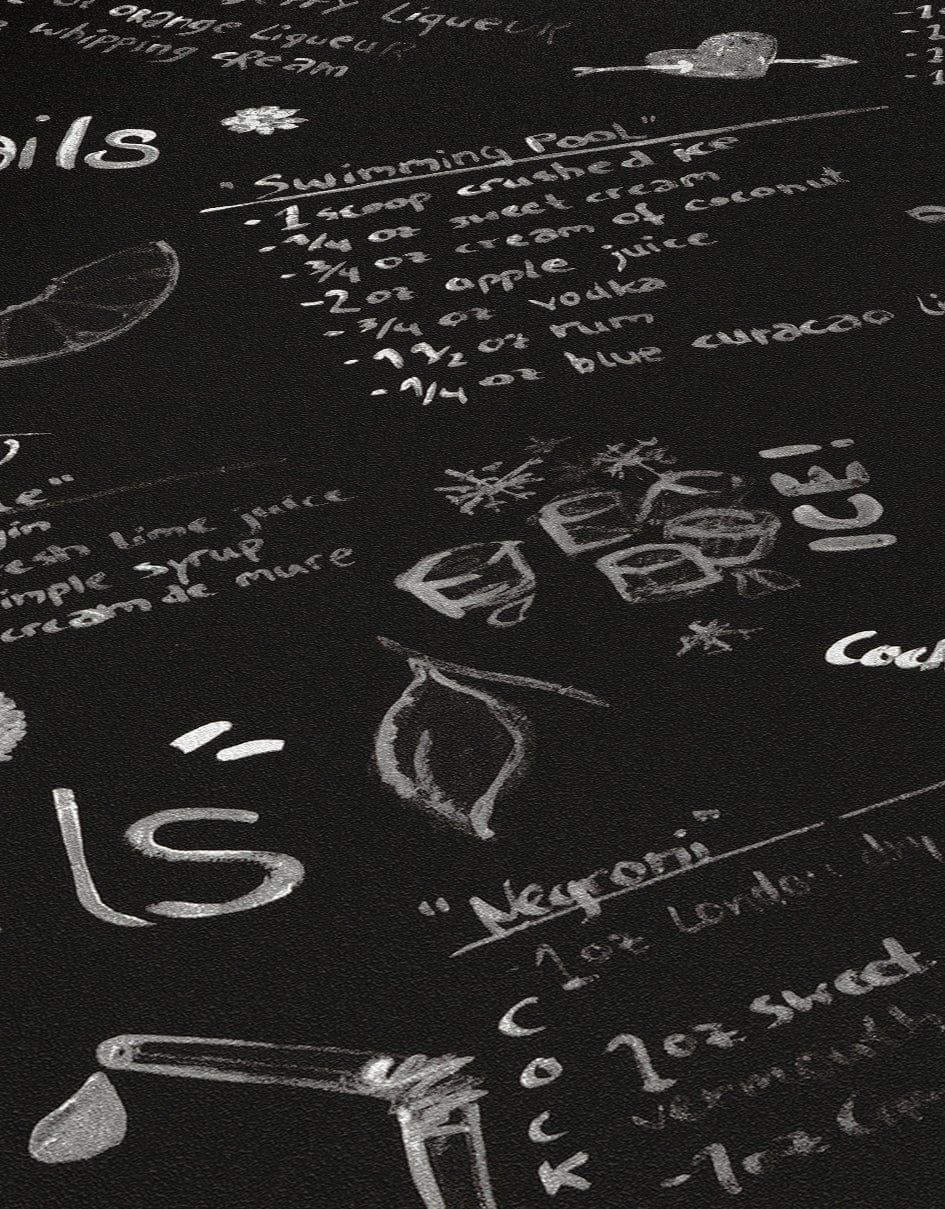 Liqueur
orange Liqueur
whipping cream
ails
"Swimming Pool"
-1 scoop crushed ice
-3/4 oz sweet cream
-3/4 oz cream of coconut
-2 oz apple juice
-3/4 oz vodka
-1 1/2 oz rum
-1/4 oz blue curacao
le"
gin
resh lime juice
imple syrup
cream de mure
ICE!
Coc
ls
"Negroni"
-1oz London dry
1oz sweet
vermouth
-1oz
COCK